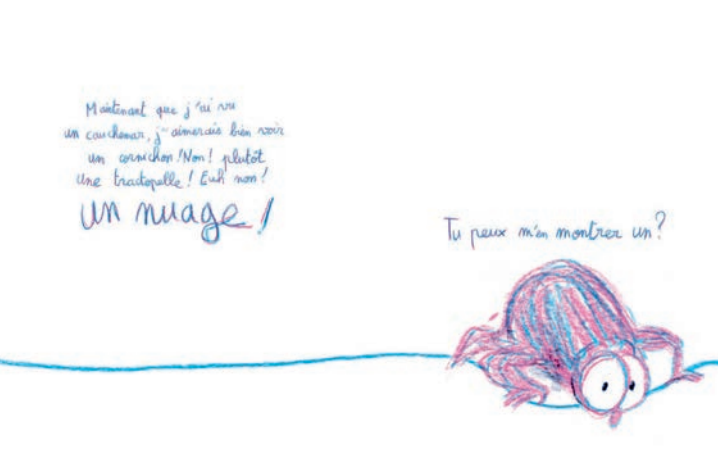 Maintenant que j'ai vu
un cauchemar, j'aimerais bien voir
un cornichon ! Non ! plutôt
une tractopelle ! Euh non !
un nuage !
Tu peux m'en montrer un ?